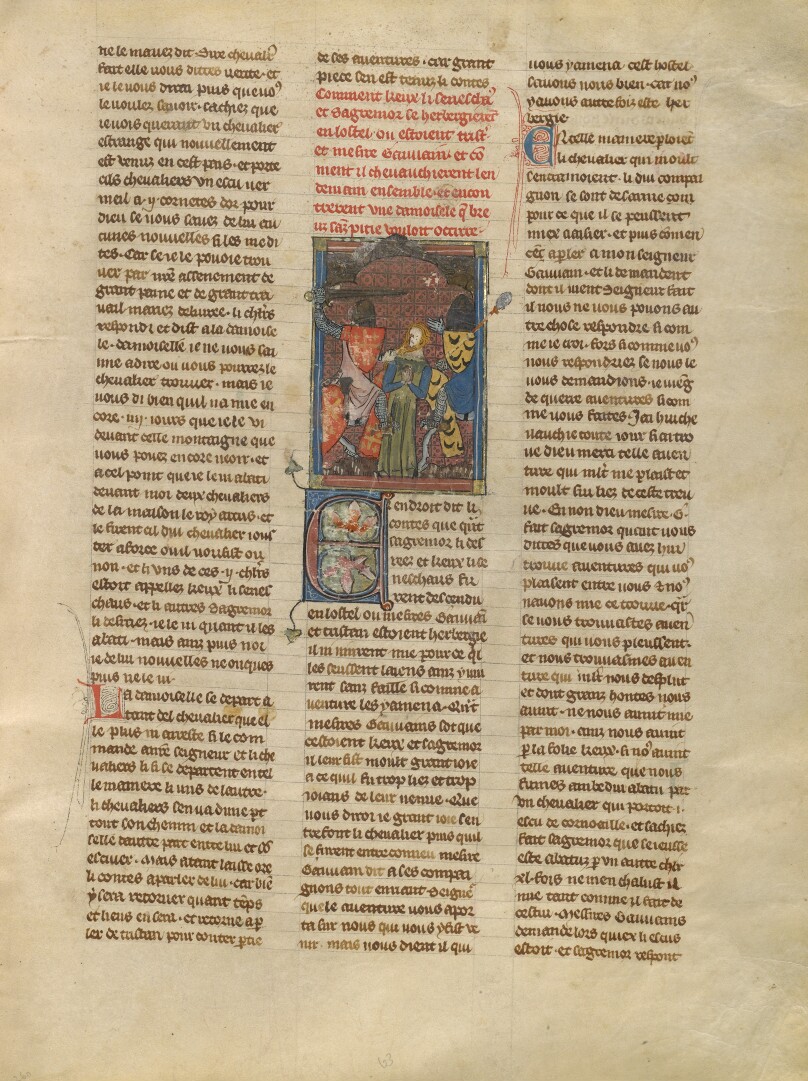 ne le mauez dit. Sire cheualr
fait elle uous dittes uerite. et
ie le uous dirai puis que uo9
le uoulez sauoir. sachiez que
ie uois querant vn cheualier
estrange qui nouuellement
est uenuz en cest pais. et porte
cils cheualiers vn escu uer
meil a .y. cornetes dor pour
dieu se uous sauez de lui au
cunes nouuelles si les me di
tes. Car se ie le pouoie trou
uer par nre assenement de
grant paine et de grant tra
uail mariez deliuree. li chlrs
respondi et dist a la damoise
le. damoiselle ie ne uous sai
mie adire ou uous pourrez le
cheualier trouuer. mais ie
uous di bien quil na mie en
core .iiij. iours que ie le vi
deuant celle montaigne que
uous pouez encore ueoir. et
a cel point que ie le ui abati
deuant moi deux cheualiers
de la maison le roy artus. et
le firent cil dui cheualier ious
ter a force ou il uousist ou
non. et li vns de ces .y. chlrs
estoit appellez keux li senes
chaus. et li autres Sagremor
li desreez. ie le ui quant il les
abati. mais ainz puis noi
ie de lui nouuelles ne onques
puis ne le ui.
La damoiselle se depart a
tant del cheualier que el
le plus ni arreste si le com
mande a nre seigneur et li che
ualiers li si se departent en tel
le maniere li uns de lautre.
li cheualiers sen ua dune pt
tout son chemin et la damoi
selle dautre part entre lui et so
escuier. Mais atant laisse ore
li contes a parler de lui. car bie
y sera retorner quant teps
et lieus en sera. et retorne a p
ler de tristan pour conter ptie
de ses auentures. car grant
piece sen est tenuz li contes
Comment keux li senescha
et Sagremor se herbergierent
en lostel ou estoient trist
et mesire Gauuain. et co
ment il cheuaucherent len
demain ensemble. et encon
trerent vne damoisele q bre
us saz pitie vouloit occirre.
Cendroit dit li
contes que qnt
sagremor li des
reez et keux li se
neschaus fu
rent descendu
en lostel ou mesires Gauuai
et tristan estoient herbergie
il ni uinrent mie pour ce qui
les seussent laiens ainz y uin
rent sanz faille si comme a
uenture les y amena. Qnt
mesires Gauuains sot que
cestoient keux et sagremor
il leur fist moult grant ioie
a ce quil fu trop liez et trop
ioians de leur uenue. Que
uous diroi ie grant ioie sen
trefont li cheualier puis quil
se furent entreconneu mesire
Gauuain dit a ses compai
gnons tout en riant. Seigne
quele auenture uous apor
ta sur nous qui uous y fist ve
nir. mais nous dient il qui
uous y amena. cest hostel
sauons nous bien. car no9
y auons autre fois este her
bergie.
En celle maniere ploient
li cheualier qui moult
sentramoient. li dui compai
gnon se sont desarme com
pour ce que il se peussent
miex aaisier. et puis comen
cet a pler a mon seigneur
Gauuain. et li demandent
dont il uient Seigneur fait
il nous ne uous pouons au
tre chose respondre si com
me ie croi. fors si comme uo9
nous respondriez se nous le
uous demandions. ie uieg
de querre auentures si com
me uous faites. Jai huiche
uauchie toute iour si ai tro
ue dieu merci telle auen
ture qui mlt me plaist et
moult sui liez de ceste treu
ue. En non dieu mesire .G.
fait sagremor quant uous
dittes que uous auez hui
trouue auentures qui uo9
plaisent entre uous & no9
nauons mie ce trouue. qr
se uous trouuastes auen
tures qui uous pleussent.
et nous trouuasmes auen
ture qui mlt nous desplut
et dont granz hontes nous
auint. ne nous auint mie
par moi. ainz nous auint
par la folie keux. si no9 auint
telle auenture que nous
fumes ambedui abatu par
vn cheualier qui portoit .i.
escu de cornoaille. et sachiez
fait sagremor que se ieusse
este abatuz p vn autre chlr
xl. fois ne men chalust il
mie tant comme il fait de
cestui. Messires Gauuains
demande lors qui ex li escus
estoit. et sagremor respont
63